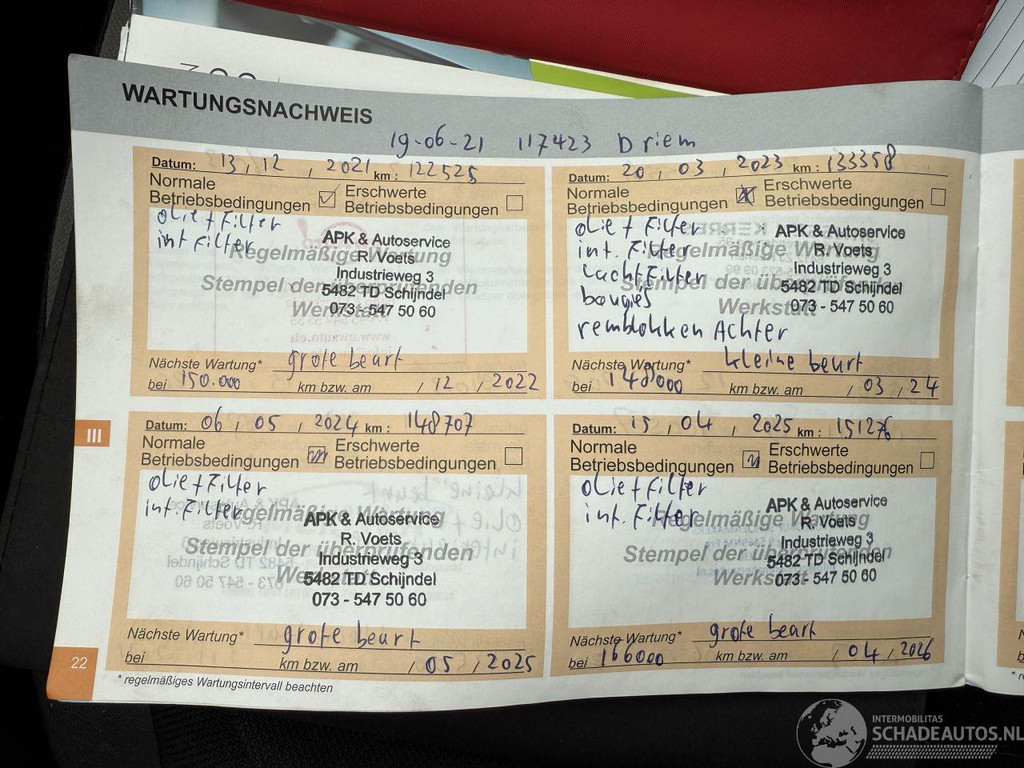 WARTUNGSNACHWEIS
19-06-21 117423 Driem
Datum: 13, 12, 2021 km: 122525
Normale Betriebsbedingungen
Erschwerte Betriebsbedingungen
olie + Filter
int Filter
Regelmäßige Wartung
Stempel der überprüfenden
Werkstatt
APK & Autoservice
R. Voets
Industrieweg 3
5482 TD Schijndel
073 - 547 50 60
Nächste Wartung* grote beurt
bei 150.000 km bzw. am / 12 , 2022
Datum: 20, 03, 2023 km: 133358
Normale Betriebsbedingungen
Erschwerte Betriebsbedingungen
olie + Filter
int. Filter
Lucht Filter
bougies
remblokken Achter
Regelmäßige Wartung
Stempel der überprüfenden
Werkstatt
APK & Autoservice
R. Voets
Industrieweg 3
5482 TD Schijndel
073 - 547 50 60
Nächste Wartung* kleine beurt
bei 148000 km bzw. am / 03 , 24
III
Datum: 06, 05, 2024 km: 148707
Normale Betriebsbedingungen
Erschwerte Betriebsbedingungen
olie + Filter
int. Filter
Regelmäßige Wartung
Stempel der überprüfenden
Werkstatt
APK & Autoservice
R. Voets
Industrieweg 3
5482 TD Schijndel
073 - 547 50 60
Nächste Wartung* grote beurt
bei km bzw. am / 05 , 2025
Datum: 15, 04, 2025 km: 151276
Normale Betriebsbedingungen
Erschwerte Betriebsbedingungen
olie + Filter
int. Filter
Regelmäßige Wartung
Stempel der überprüfenden
Werkstatt
APK & Autoservice
R. Voets
Industrieweg 3
5482 TD Schijndel
073 - 547 50 60
Nächste Wartung* grote beurt
bei 166000 km bzw. am / 04 , 2026
22
* regelmäßiges Wartungsintervall beachten
INTERMOBILITAS
SCHADEAUTOS.NL